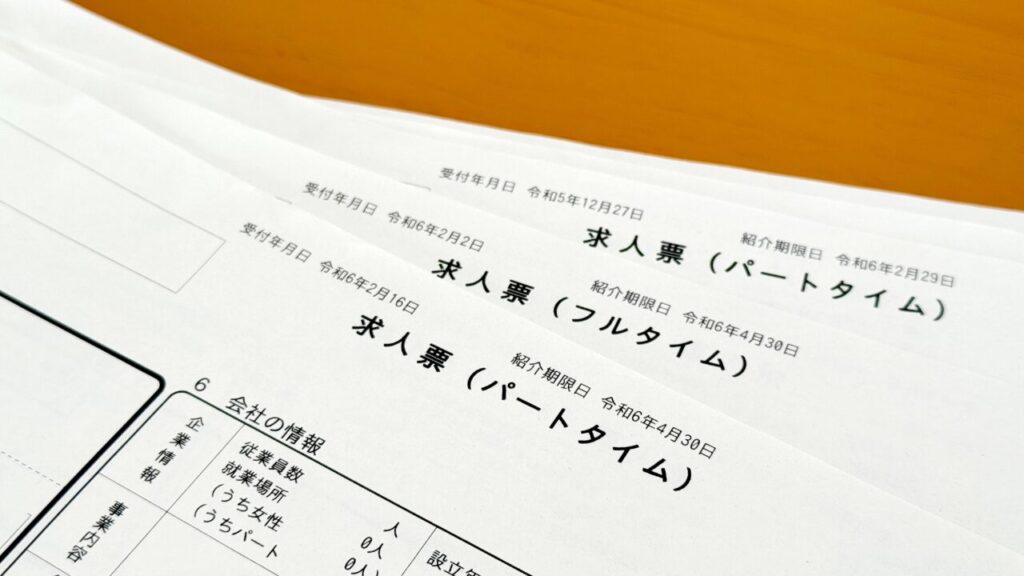 受付年月日 令和5年12月27日
紹介期限日 令和6年2月29日
求人票（パートタイム）
受付年月日 令和6年2月2日
紹介期限日 令和6年4月30日
求人票（フルタイム）
受付年月日 令和6年2月16日
紹介期限日 令和6年4月30日
求人票（パートタイム）
6 会社の情報
企業情報
従業員数
就業場所
（うち女性
（うちパート
人
0人
0人）
事業内容